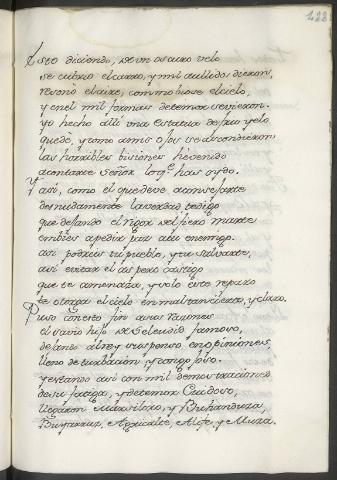 122
Esto diciendo, de un oscuro velo
se cubrio el carro, y mil aullidos dieron,
resonò el aire, commobiose el cielo,
y en el mil formas de temor se vieron.
yo hecho allí una estatua de frio yelo
quedè, y como a mis ojos se ascondieron
las horribles bisiones he venido
a contarte Señor lo q.e has oydo.
Y así, como el que deve aconsejarte
desnudamente la verdad te digo
que dejando el rigor del fiero marte
embíes a pedir paz a tu enemigo.
así podras tu pueblo, y tu salvarte,
así evitar el aspero castigo
que te amenaza, y solo este reparo
te otorga el cielo en mal tan cierto, y claro.
Puso con esto fin a sus razones
el savio hijo de Seleudio famoso,
dejando al rey suspenso en opiniones,
lleno de turbacion, y congojoso.
y estando así con mil demostraciones
de su fatiga, y de temor Cuidoso,
llegaron Marsiloro, y Buhanduza,
Bujarraz, Agricalte, Alife, y Muza.